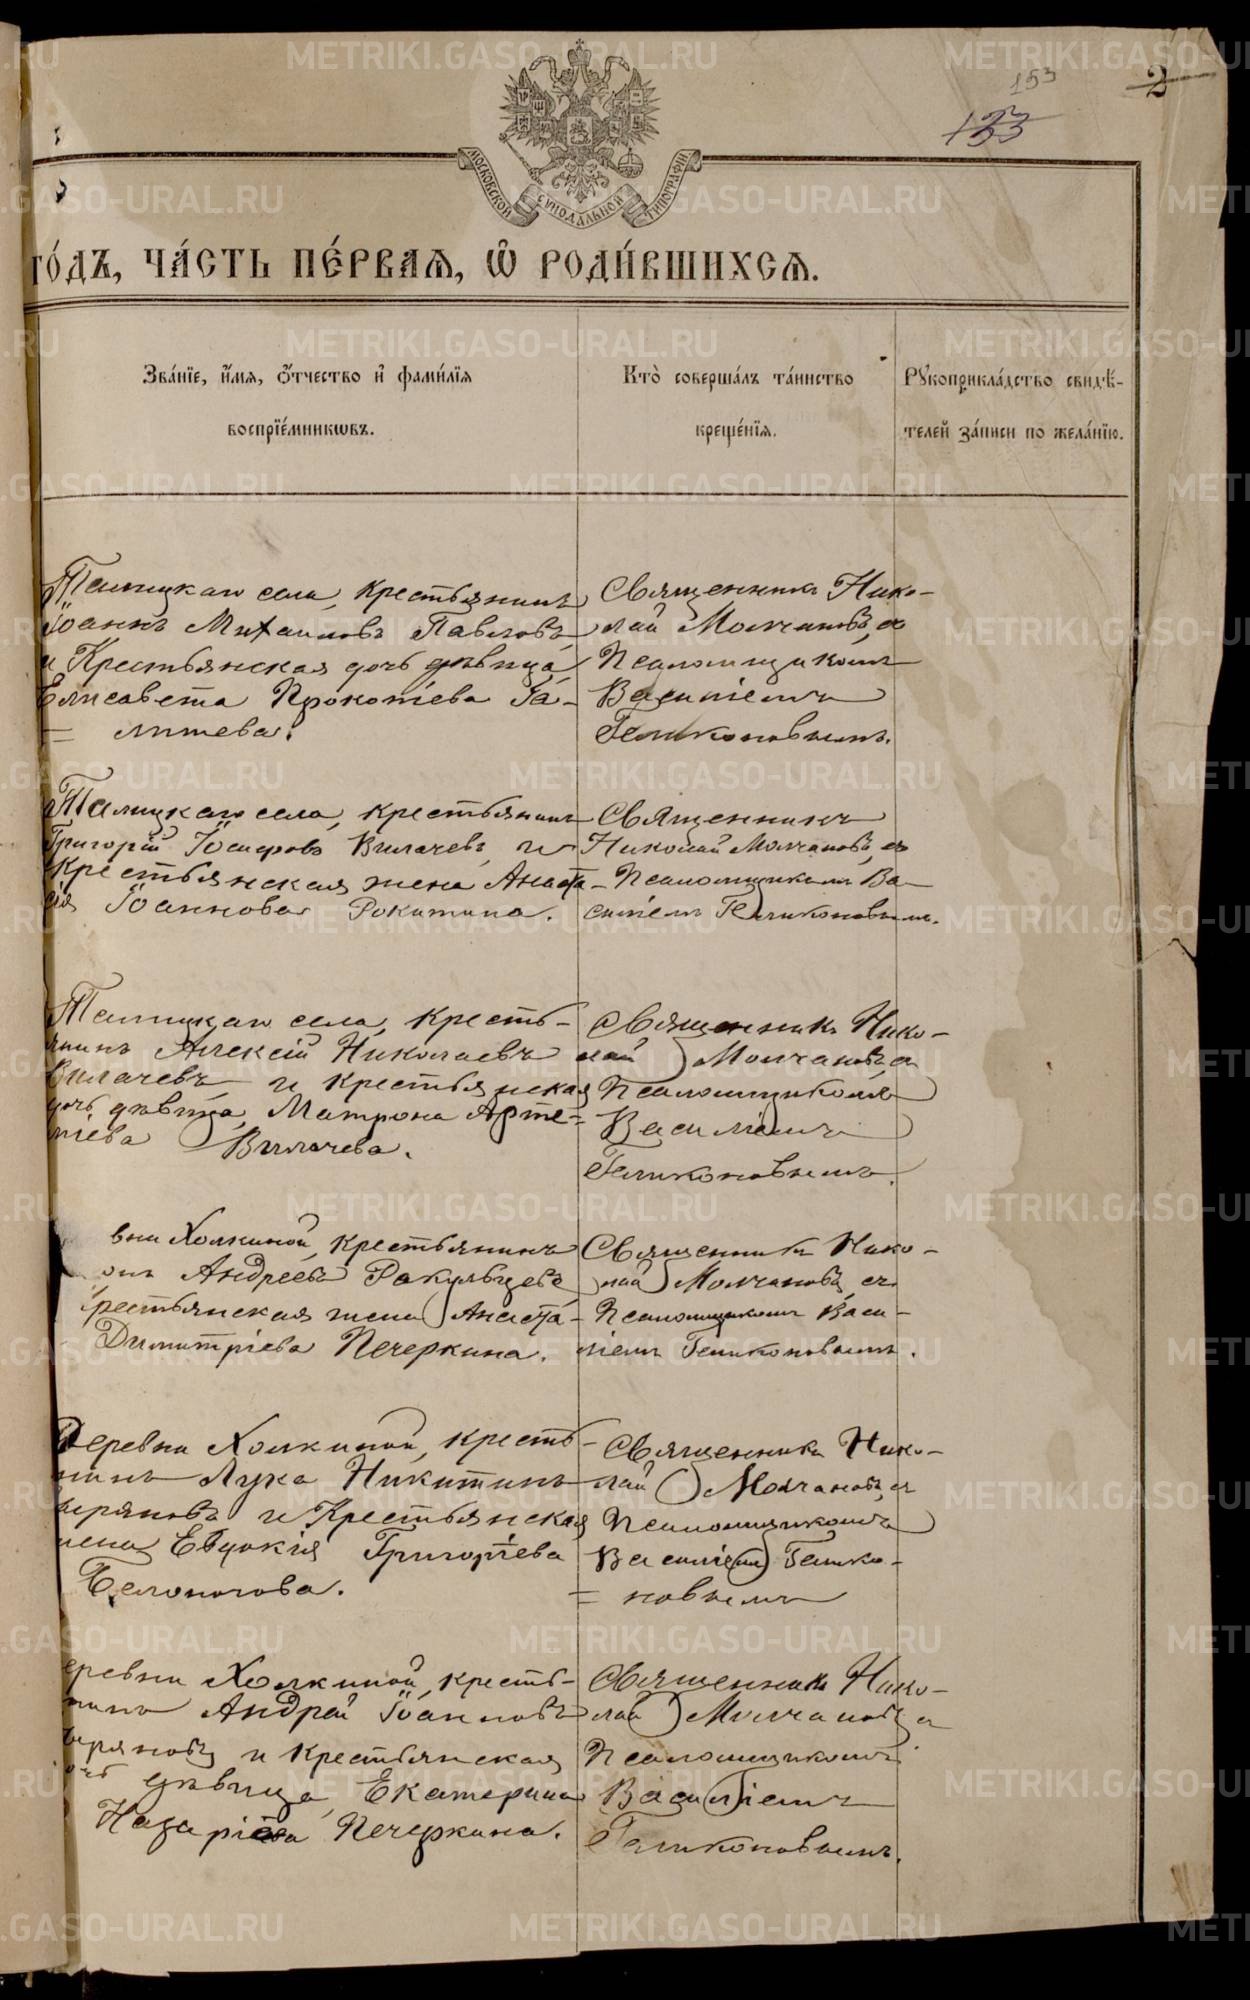 153
2
133
МОСКОВСКОЙ СѴНОДАЛЬНОЙ ТИПОГРАФІИ
го́дъ, ча́сть пе́рваѧ, ѽ роди́вшихсѧ.
Зва́нїе, и҆́мѧ, ѻ҆́тчество и҆ фами́лїѧ
воспрїе́мникѡвъ.
Кто̀ соверша́лъ та́инство
креще́нїѧ.
Рꙋкоприкла́дство свидѣ́-
телей за́писи по жела́нїю.
Талицкаго села, крестьянинъ
Іоаннъ Михаиловъ Павловъ
и Крестьянская дочь дѣвица
Елисавета Прокопіева Га-
= лишева.
Священникъ Нико-
лай Молчановъ съ
Псаломщикомъ
Василіемъ
Геликоновымъ.
Талицкаго села, крестьянинъ
Григорій Іосифовъ Вилачевъ и
Крестьянская жена Анаста-
сія Іоаннова Рокитина.
Священникъ
Николай Молчановъ съ
Псаломщикомъ Ва-
силіемъ Геликоновымъ.
Талицкаго села, кресть-
янинъ Алексій Николаевъ
Вилачевъ и крестьянская
дочь дѣвица, Матрона Арте-
міева Вилачева.
Священникъ Нико-
лай Молчановъ съ
Псаломщикомъ
Василіемъ
Геликоновымъ.
вни Холкиной, крестьянинъ
Андреевъ Ракульцевъ
рестьянская жена Анаста-
Димитріева Печеркина.
Священникъ Нико-
лай Молчановъ съ
Псаломщикомъ Васи-
ліемъ Геликоновымъ.
Деревни Холкиной, кресть-
нинъ Лука Никитинъ
и Крестьянская
жена Евдокія Григоріева
Белоногова.
Священникъ Нико-
лай Молчановъ съ
Псаломщикомъ
Василіемъ Гелико-
= новымъ
еревни Холкиной, кресть-
нинъ Андрей Іоанновъ
и крестьянская
очь дѣвица, Екатерина
Назаріева Печеркина.
Священникъ Нико-
лай Молчановъ съ
Псаломщикомъ
Василіемъ
Геликоновымъ.
METRIKI.GASO-URAL.RU